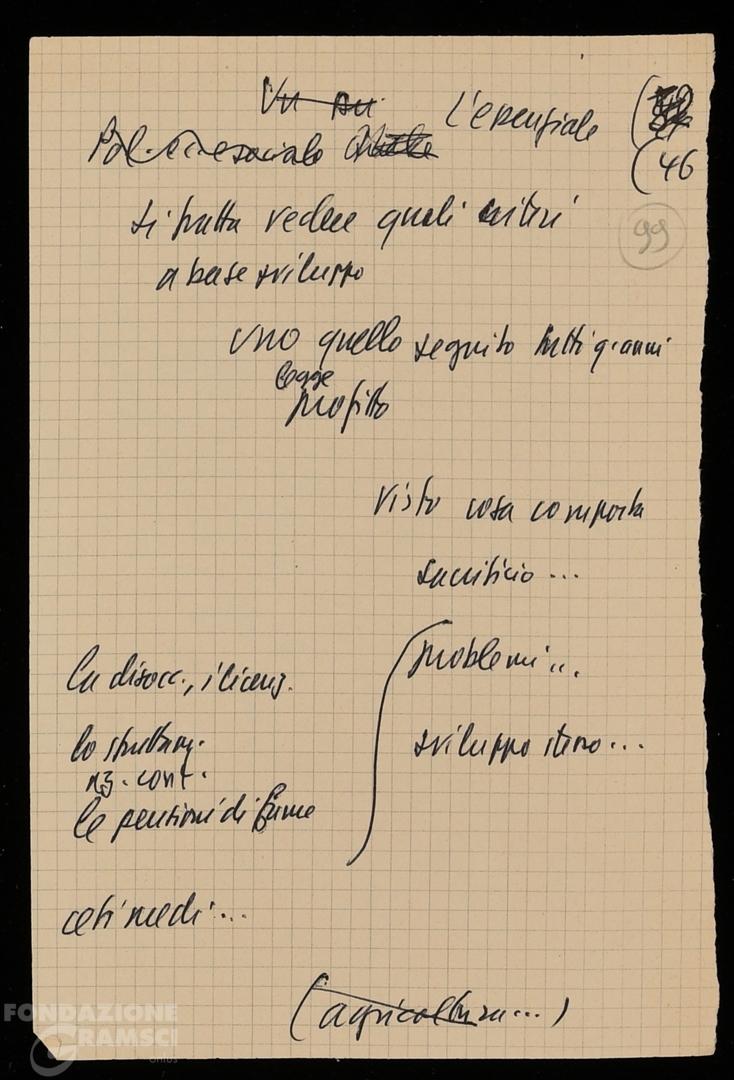 L'essenziale
Pol. ec. e sociale
(46
si tratta vedere quali criteri
99
a base sviluppo
uno quello seguito tutti q. anni
legge
profitto
visto cosa comporta
sacrificio...
problemi...
la disocc., i licenz.
lo sfruttam.
sviluppo stesso...
le pensioni di fame
ceti medi...
(agricoltura...)
FONDAZIONE
GRAMSCI
ONLUS